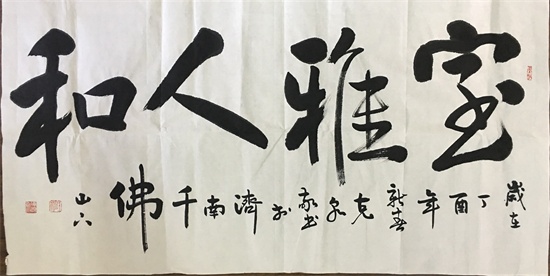 室雅人和
歲在丁酉年新春克泉敬书於濟南千佛山下